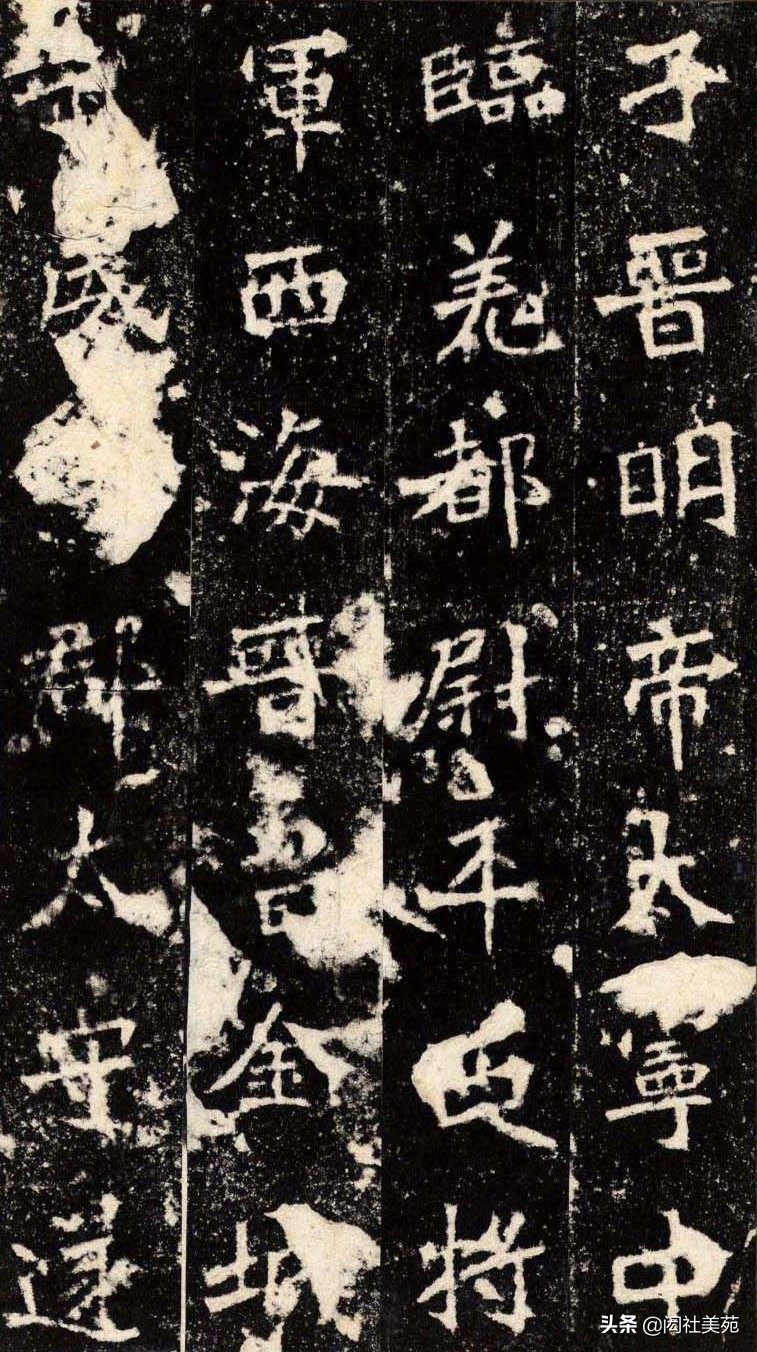 子晉明帝太寧中
臨羌都尉平西將
軍西海晉昌金城
威郡太守遂
头条 @闳社美苑